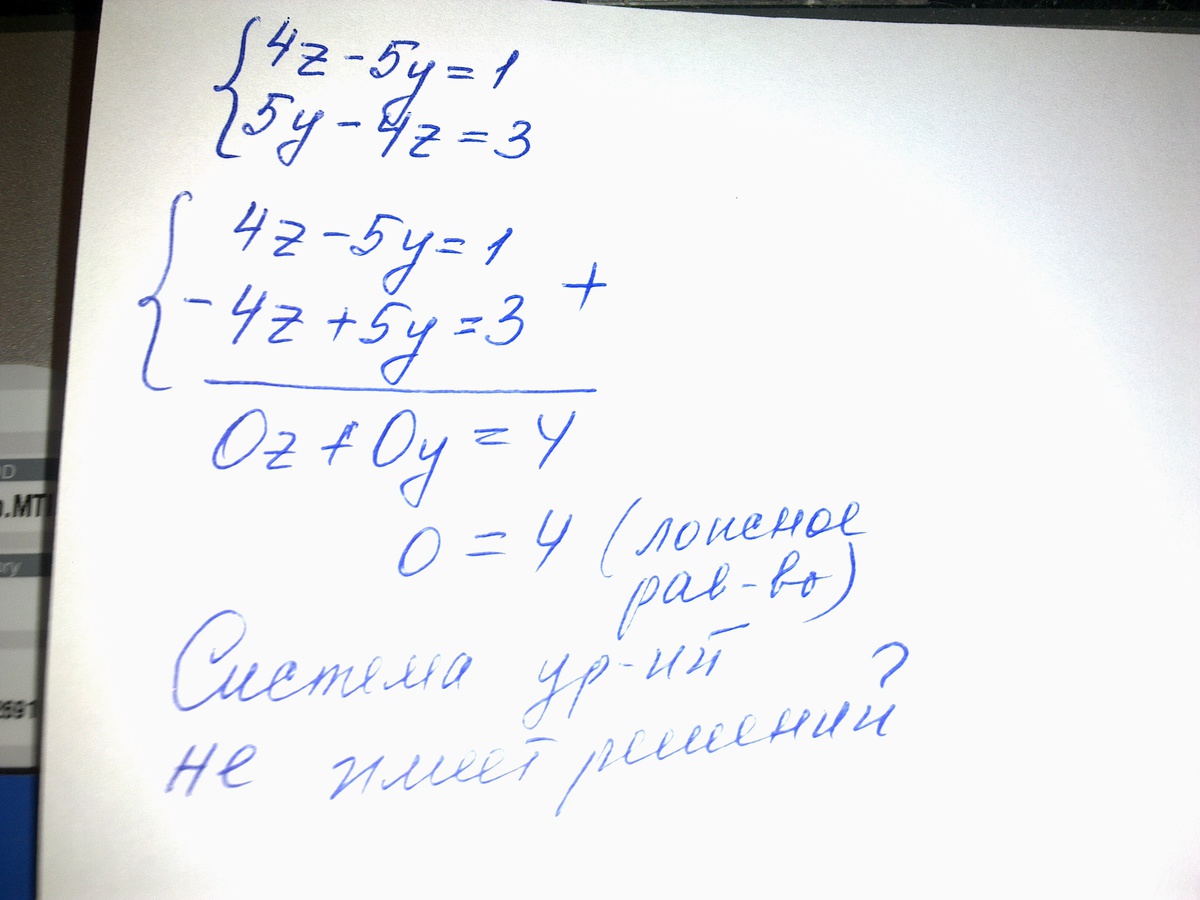 4z-5y=1
5y-4z=3
4z-5y=1
-4z+5y=3
+
0z+0y=4
0=4 (ложное
рав-во)
Система ур-ий
не имеет решений?